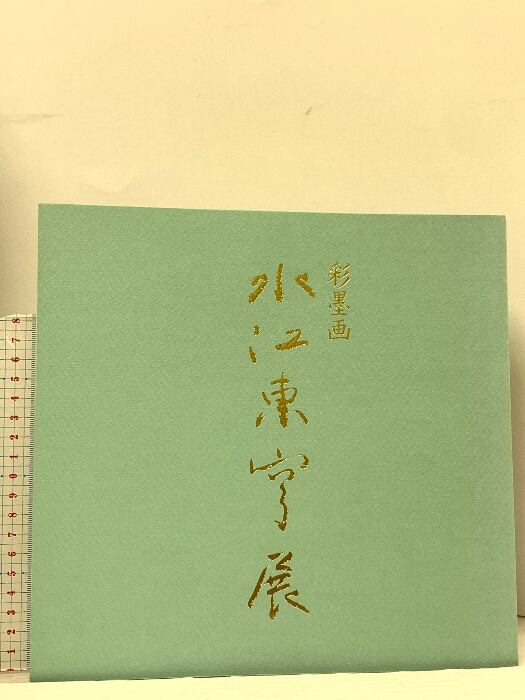 彩墨画
水江東穹展